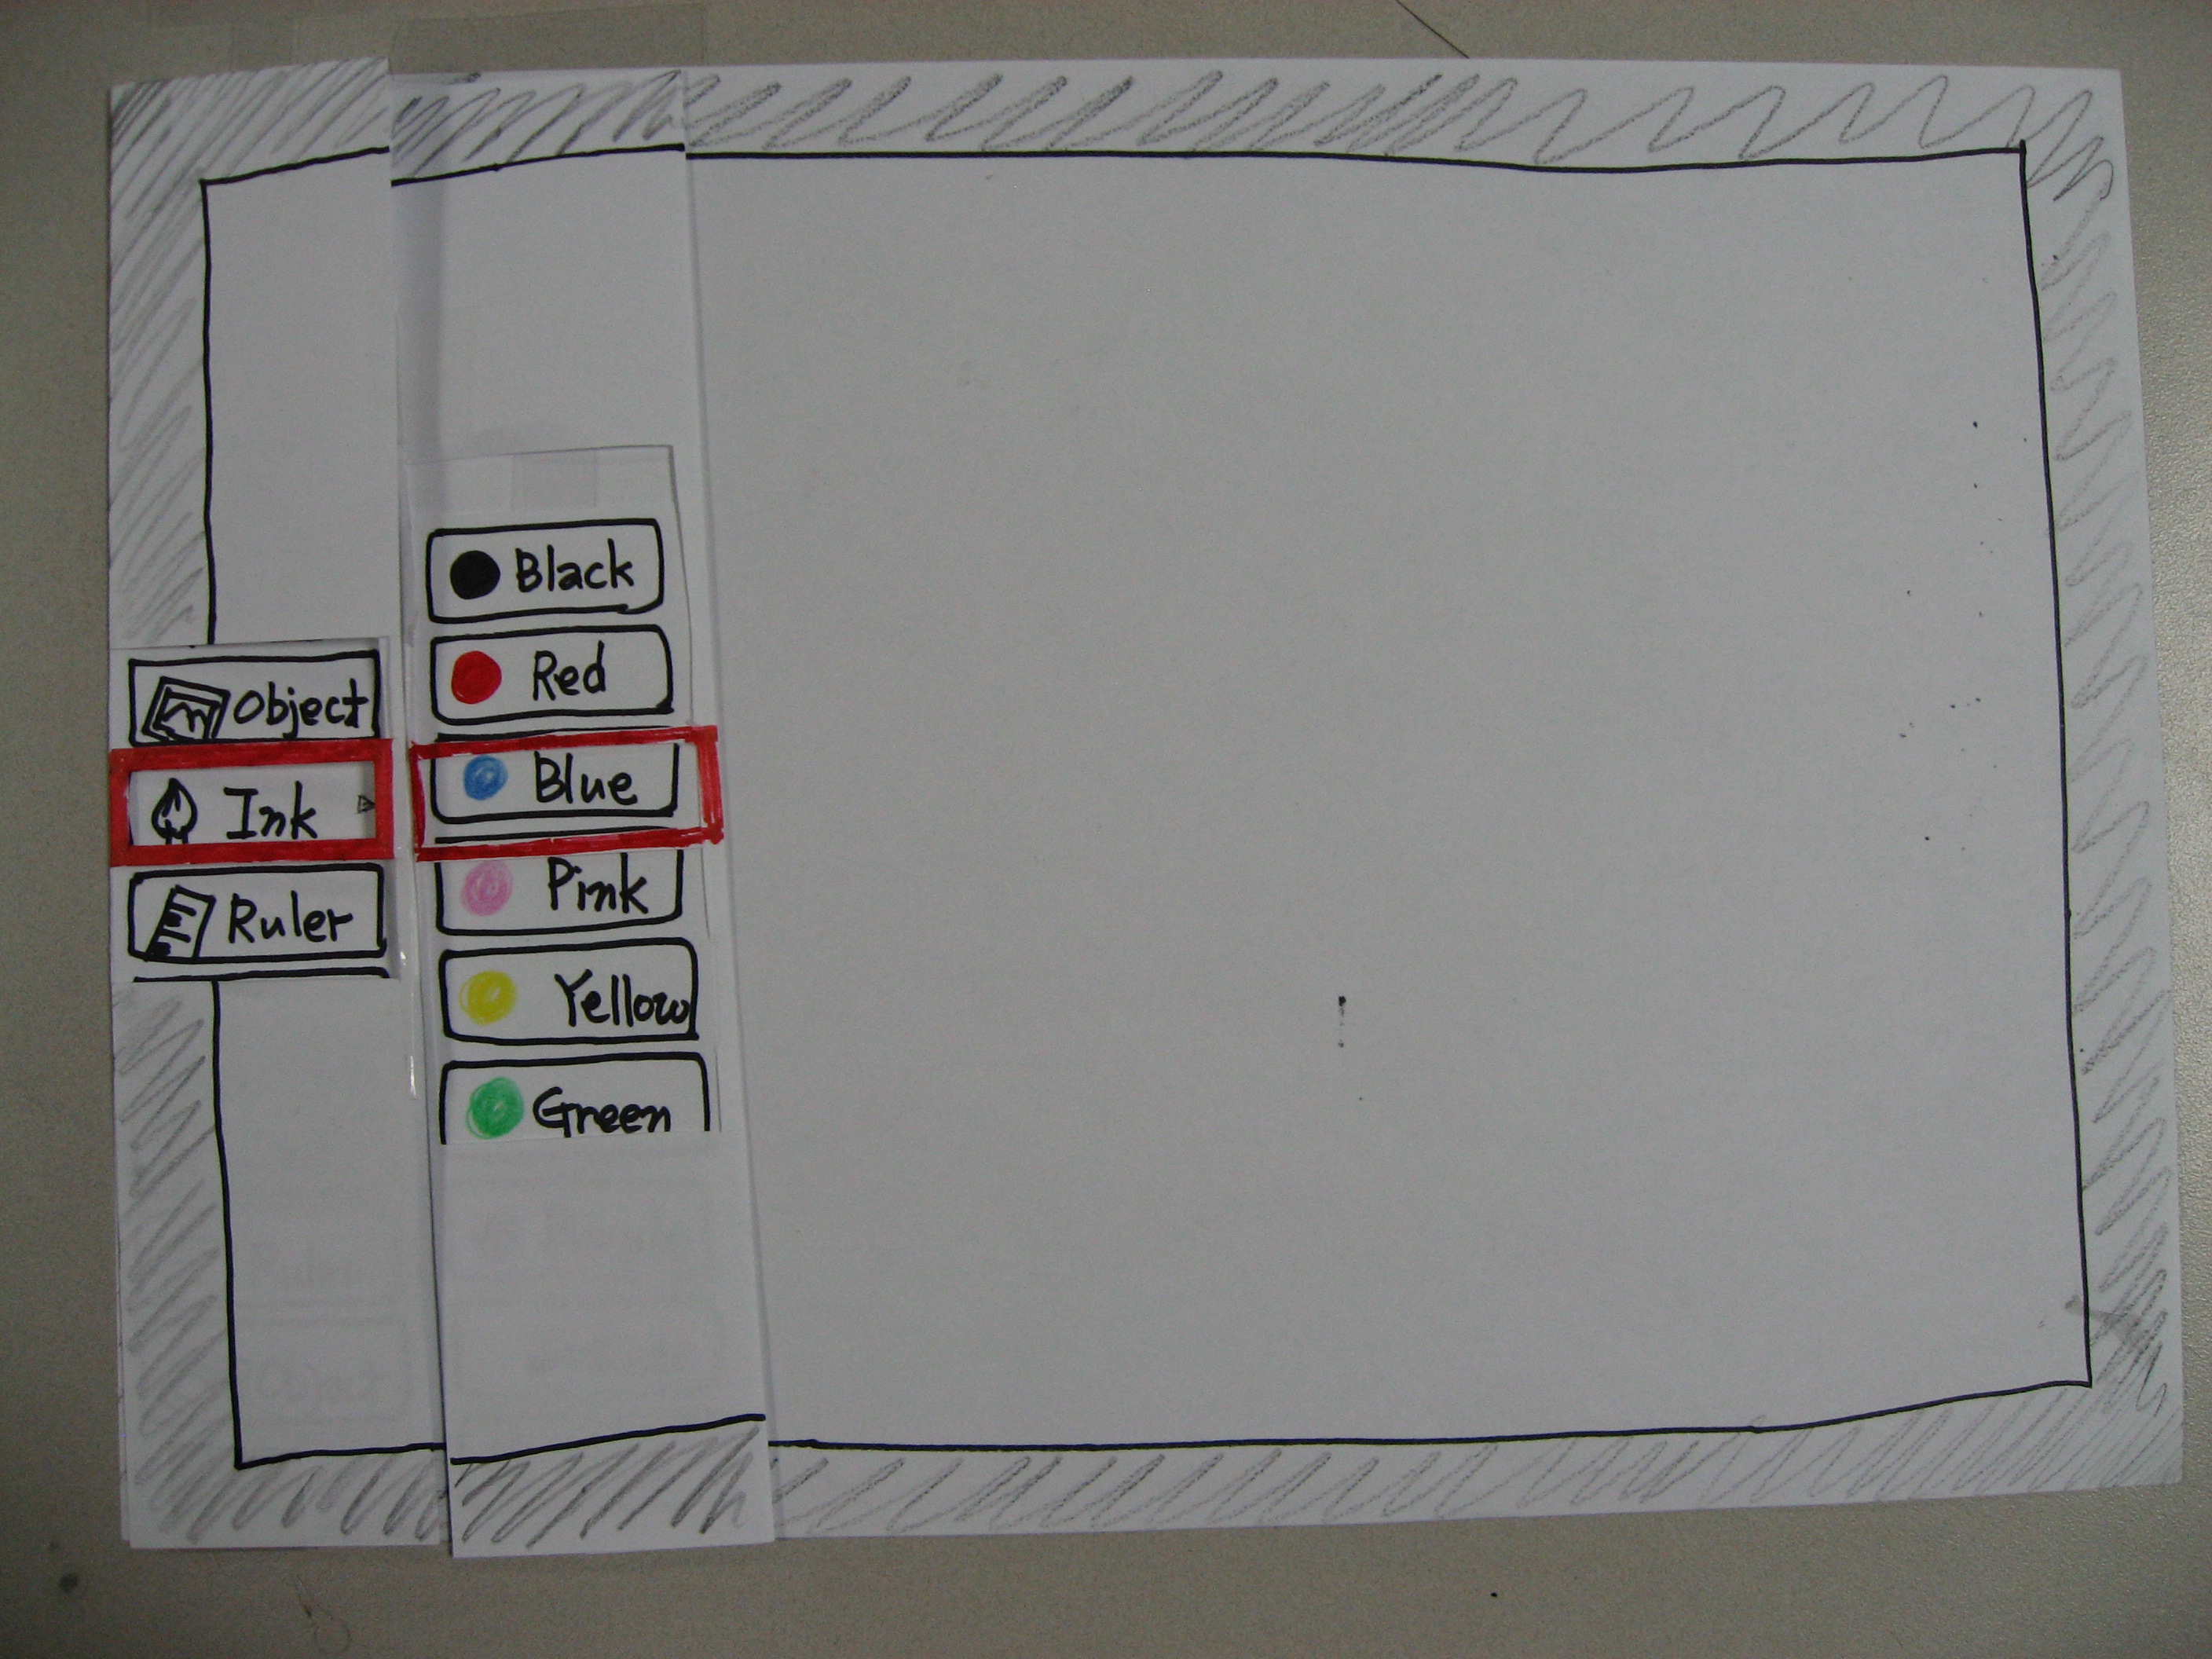 Object
Ink
Ruler
Black
Red
Blue
Pink
Yellow
Green